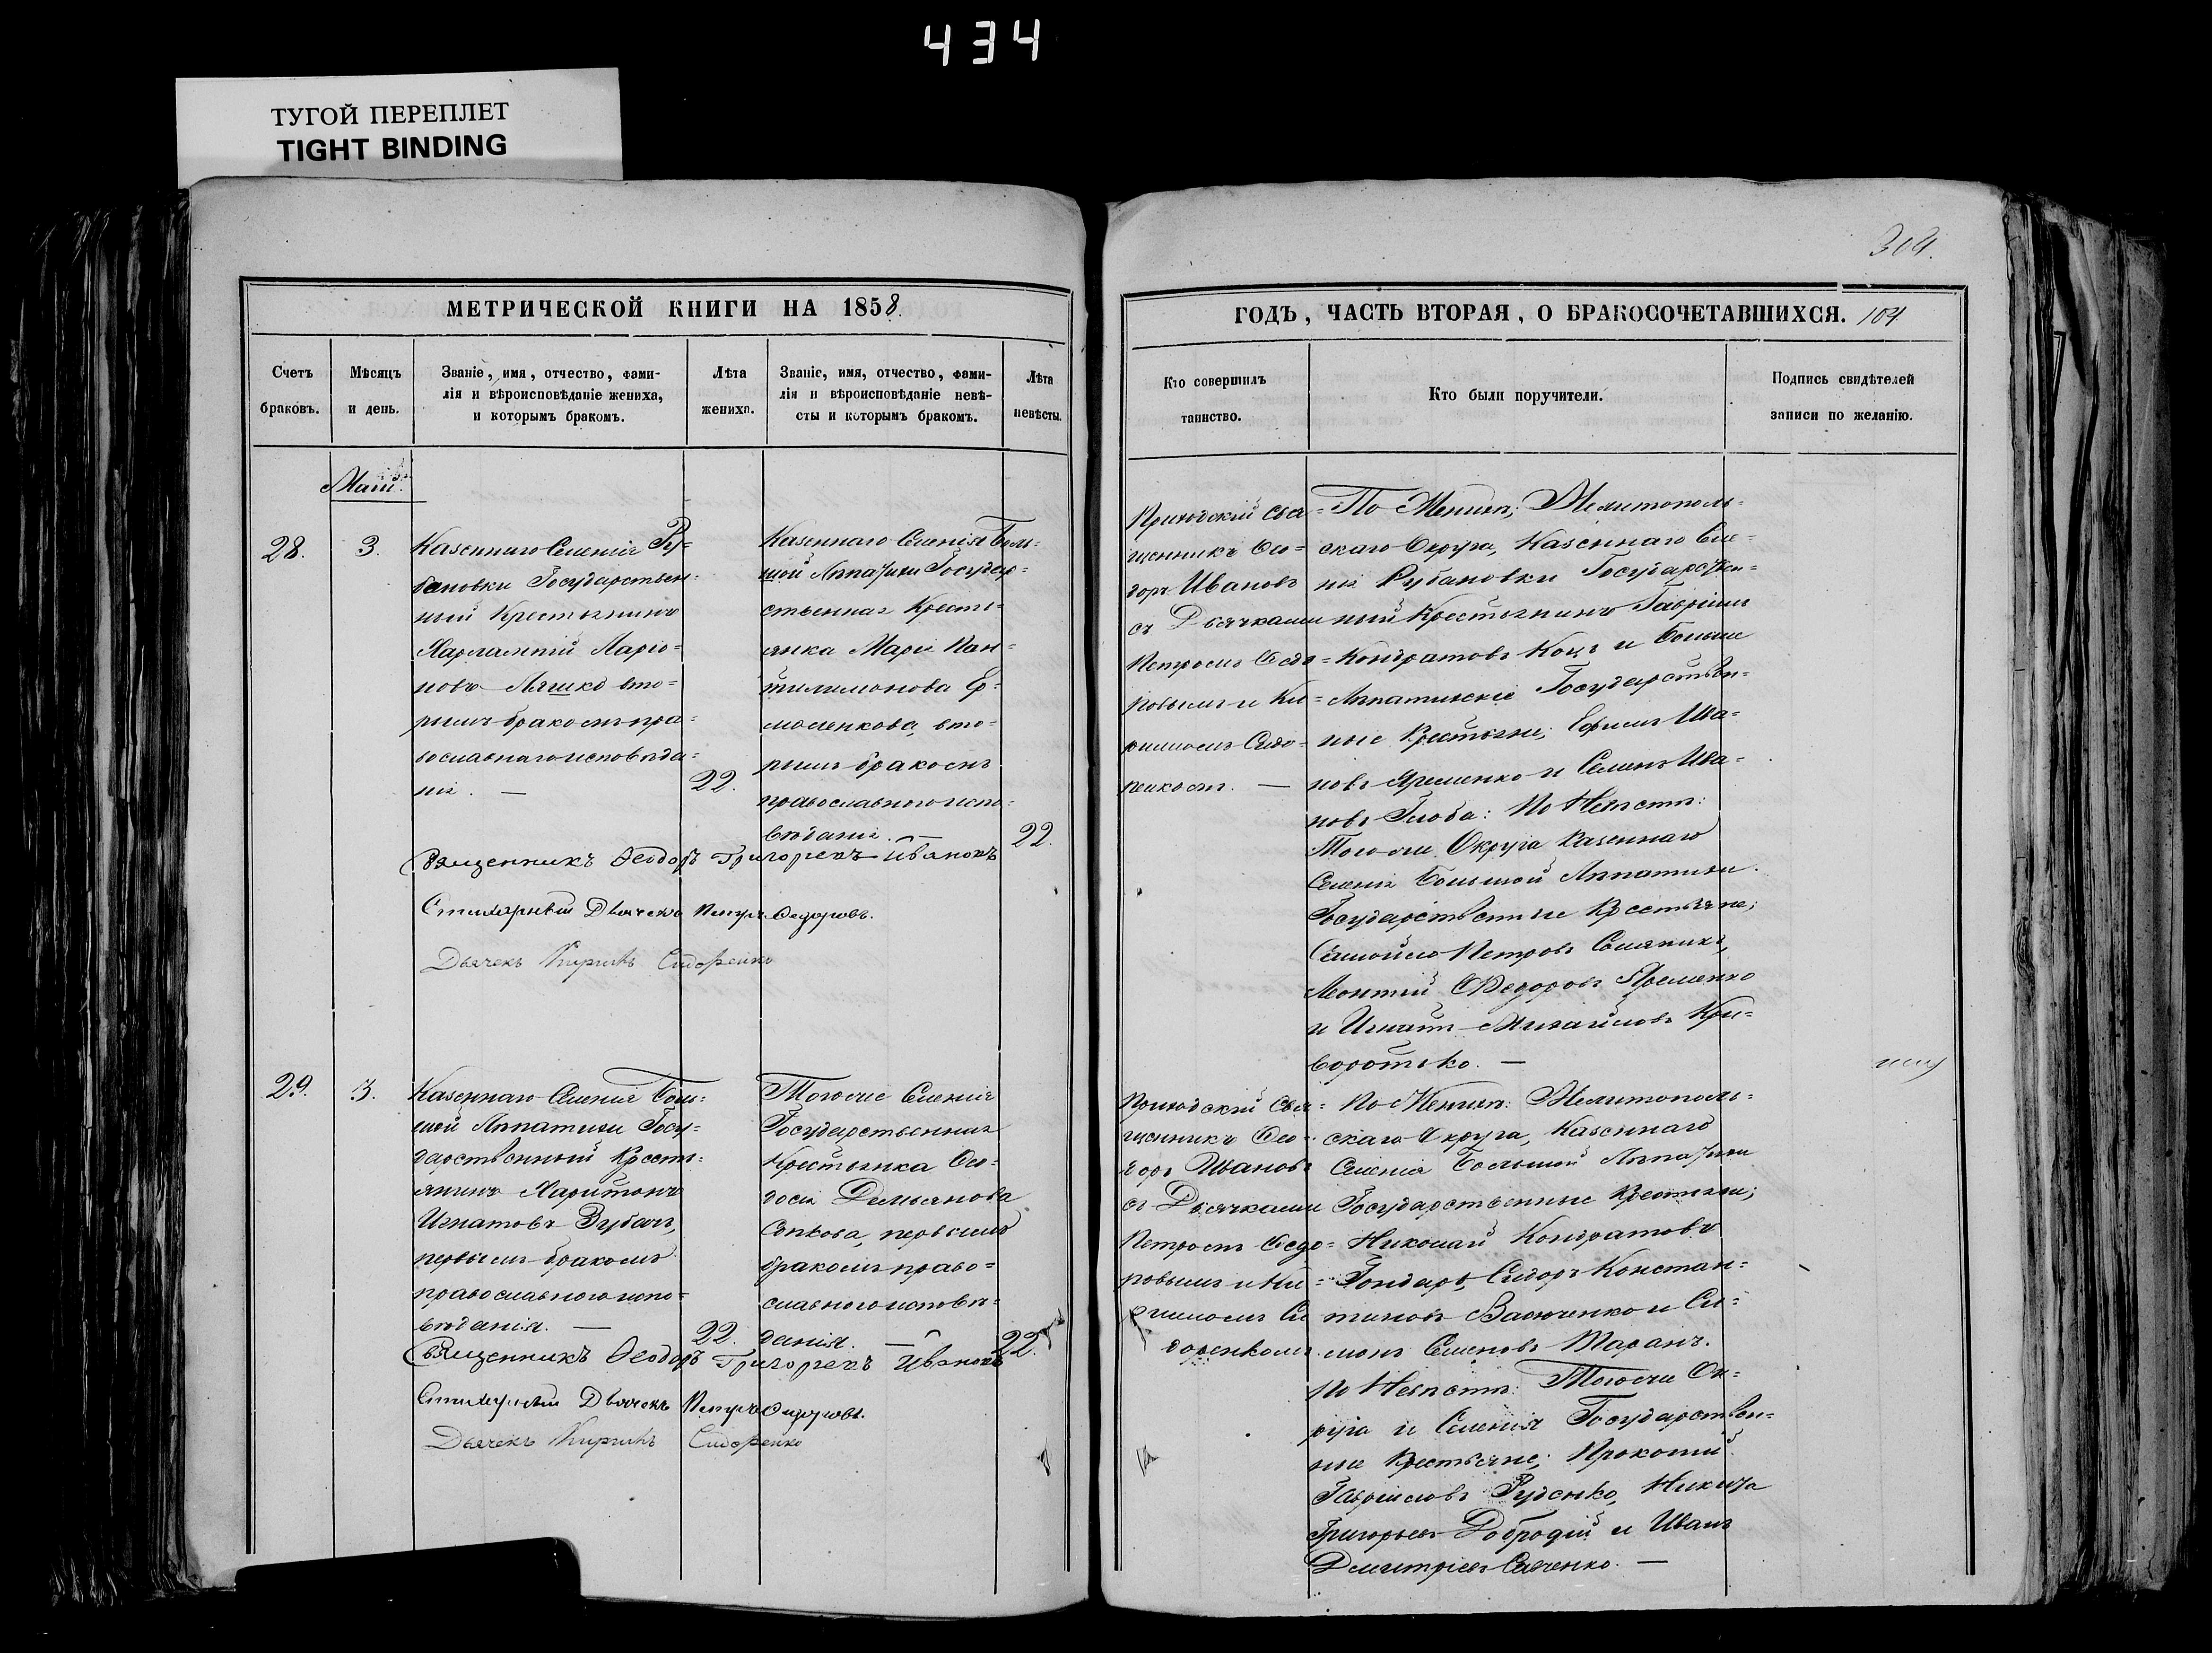 434
ТУГОЙ ПЕРЕПЛЕТ
TIGHT BINDING
МЕТРИЧЕСКОЙ КНИГИ НА 1858.
Счетъ
браковъ.
Мѣсяцъ
и день.
Званіе, имя, отчество, фами-
лія и вѣроисповѣданіе жениха,
и которымъ бракомъ.
Лѣта
жениха.
Званіе, имя, отчество, фами-
лія и вѣроисповѣданіе невѣ-
сты и которымъ бракомъ.
Лѣта
невѣсты.
Маій.
28.
3.
Казеннаго Селенія Ру=
бановки Государствен=
ный Крестьянинъ
Харлампій Ларіо=
новъ Ляшко вто=
рымъ бракомъ пра=
вославнаго исповѣда=
нія. —
22.
Казеннаго Селенія Боль=
шой Лѣпатихи Государ=
ственная Крестья=
янка Марія Пан=
тилимонова Ер=
моленкова, вто=
рымъ бракомъ
православного испо=
вѣданія. —
22.
Священникъ Ѳеодоръ Григорьевъ Ивановъ
Стихарный Дьячекъ Петръ Ѳедоровъ.
Дьячекъ Кирилъ Сидоренко
29.
3.
Казеннаго Селенія Боль=
шой Лѣпатихи Госу=
дарственный Кресть=
янинъ Харитонъ
Игнатовъ Зубачъ,
первымъ бракомъ
православного испо=
вѣданія. —
22.
Тогоже Селенія
Государственная
Крестьянка Ѳео=
досія Демьянова
первымъ
бракомъ право=
славного исповѣ=
данія. —
22.
Священникъ Ѳеодоръ Григорьевъ Ивановъ
Стихарный Дьячекъ Петръ Ѳедоровъ.
Дьячекъ Кирилъ Сидоренко
ГОДЪ, ЧАСТЬ ВТОРАЯ, О БРАКОСОЧЕТАВШИХСЯ. 104
Кто совершилъ
таинство.
Кто были поручители.
Подпись свидѣтелей
записи по желанію.
Приходскій Свя=
щенникъ Ѳео=
доръ Ивановъ
съ Дьячками
Петромъ Ѳедо=
ровымъ и Ки=
риломъ Сидо=
ренкомъ. —
По Женихѣ; Мелитополь=
скаго Округа, Казеннаго Селе=
нія Рубановки Государствен=
ный Крестьянинъ Гавріилъ
Кондратовъ Коцъ и Больше
Лѣпатихскіе Государствен=
ные Крестьяне; Ефимъ Ива=
новъ Яременко и Семенъ Ива=
новъ Глоба: По Невѣстѣ:
Тогоже Округа Казеннаго
Селенія Большой Лѣпатихи
Государственные Крестьяне;
Самойло Петровъ
Леонтій Ѳедоровъ Яременко
и Игнатъ Михайловъ Кри=
воротько. —
Приходскій Свя=
щенникъ Ѳео=
доръ Ивановъ
съ Дьячками
Петромъ Ѳедо=
ровымъ и Ки=
риломъ Си
доренкомъ.
По Женихѣ: Мелитополь=
скаго Округа, Казеннаго
Селенія Большой Лѣпатихи
Государственные Крестьяне;
Николай Кондратовъ
Гондаръ, Сидоръ Констан=
тиновъ и Си=
монъ Семеновъ Таранъ.
По Невѣстѣ: Тогоже Ок=
руга и Селенія Государствен=
ные Крестьяне; Прокопій
Гавриловъ Руденко, Никита
Григорьевъ Добродій и Иванъ
Дмитріевъ Савченко. —